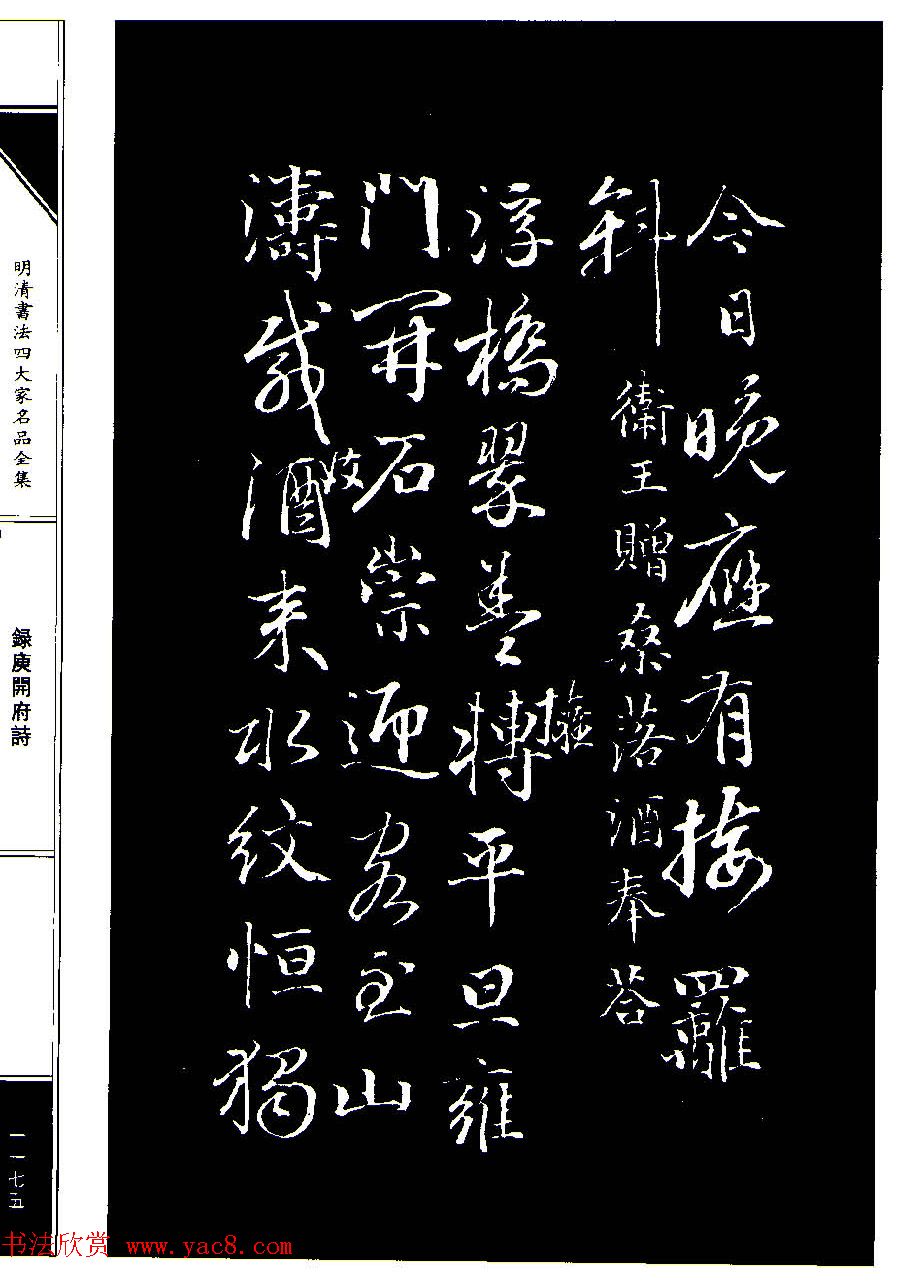 今日晚應有接䍦
斜 衛王贈桑落酒奉荅
浮橋翠蓋轉平旦雍
擁
門開石崇迎客至山
濤載酒來水紋恒獨
明清書法四大家名品全集
録庾開府詩
一一七五
书法欣赏 www.yac8.com